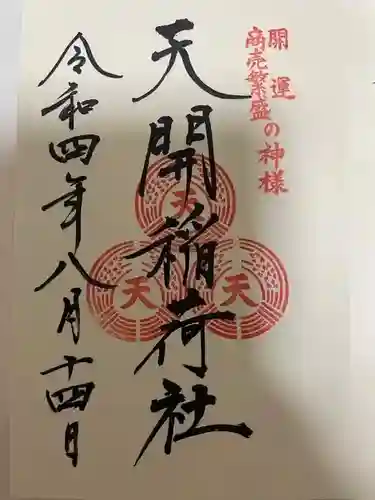 開運
商売繁盛の神様
天開稲荷社
天
天
天
令和四年八月十四日